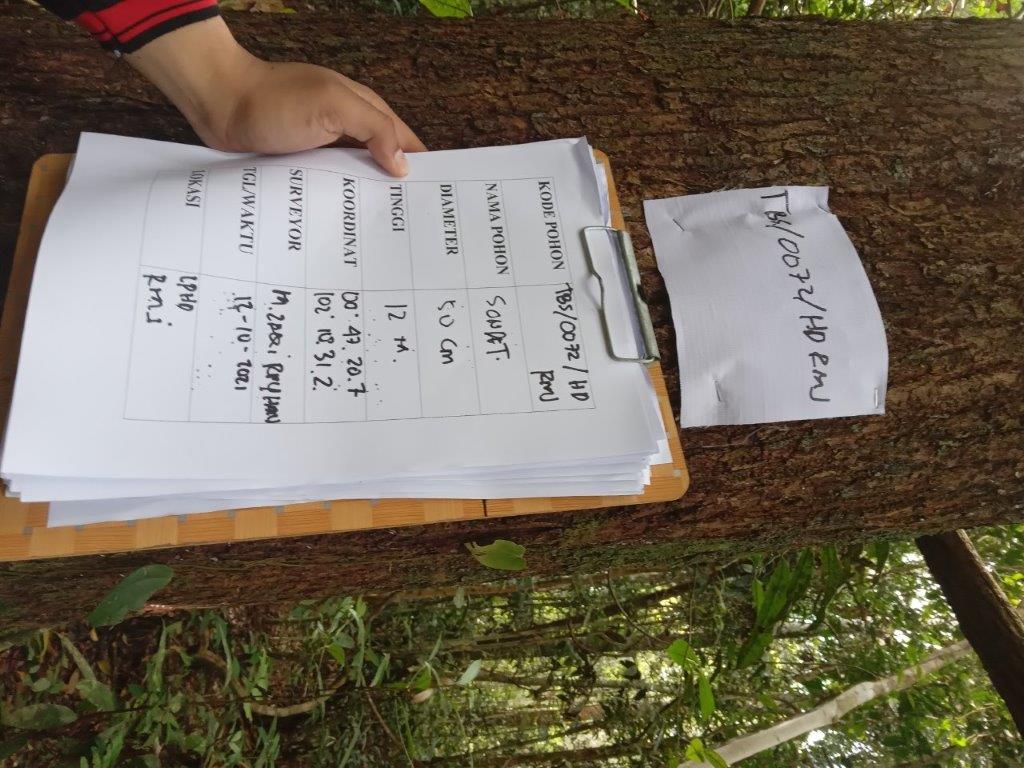 TBS/0072/HD RMJ
KODE POHON TBS/0072/HD
RMJ
NAMA POHON SONDET.
DIAMETER 50 cm
TINGGI 12 M.
KOORDINAT 00° 47. 20.7
102° 18.31.2.
SURVEYOR M. ZAKI RAYHAN
TGL/WAKTU 12-10-2021
LOKASI LPHD
RMJ